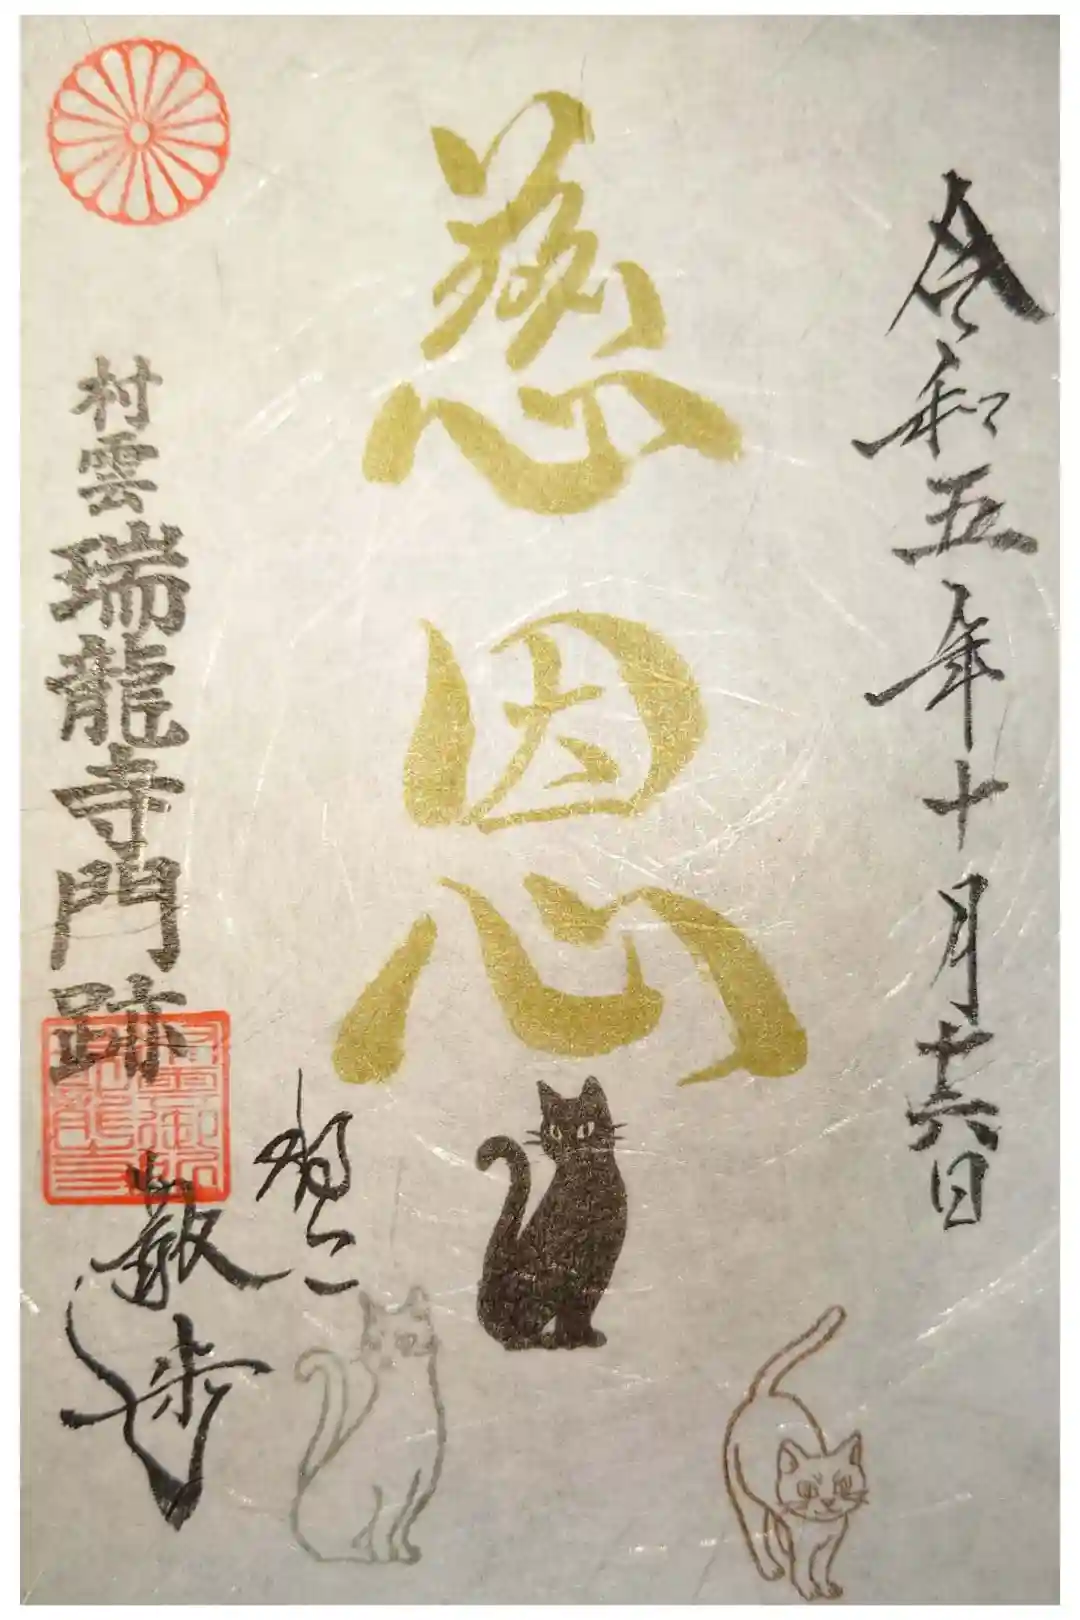 令和五年十月十六日
慈恩
村雲瑞龍寺門跡